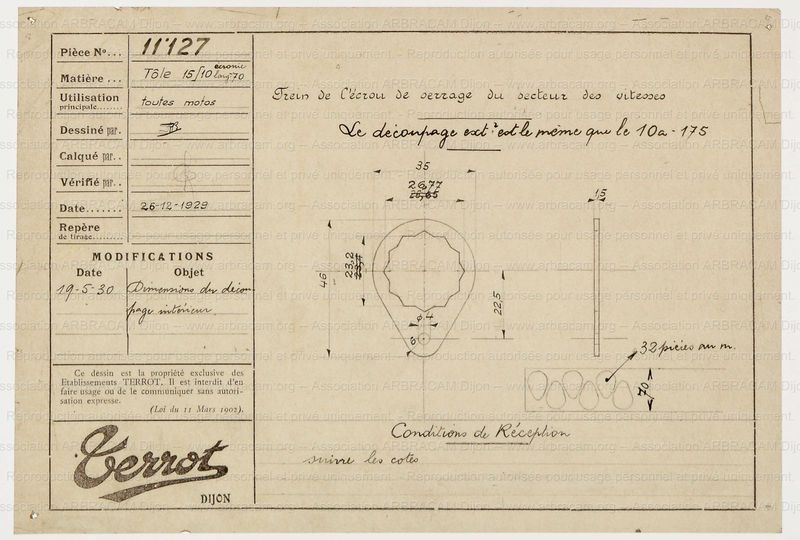 Pièce Nº... 11127
Matière ... Tôle 15/10 larg. 70
Utilisation toutes motos
principale........
Dessiné par.
Calqué par..
Vérifié par..
Date....... 26-12-1929
Repère
de tirage........
MODIFICATIONS
Date Objet
19-5-30 Dimensions du décou-
page intérieur
Ce dessin est la propriété exclusive des
Etablissements TERROT. Il est interdit d'en
faire usage ou de le communiquer sans autori-
sation expresse.
(Loi du 11 Mars 1902).
Terrot
DIJON
Frein de l'écrou de serrage du secteur des vitesses
Le découpage extr est le même que le 10a-175
35
26,77
26,65
15
46
23,2
22,5
ø.4
6
32 pièces au m.
70
Conditions de Réception
suivre les cotes
Association ARBRACAM Dijon – www.arbracam.org – Association ARBRACAM Dijon – www.arbracam.org
Reproduction autorisée pour usage personnel et privé uniquement.